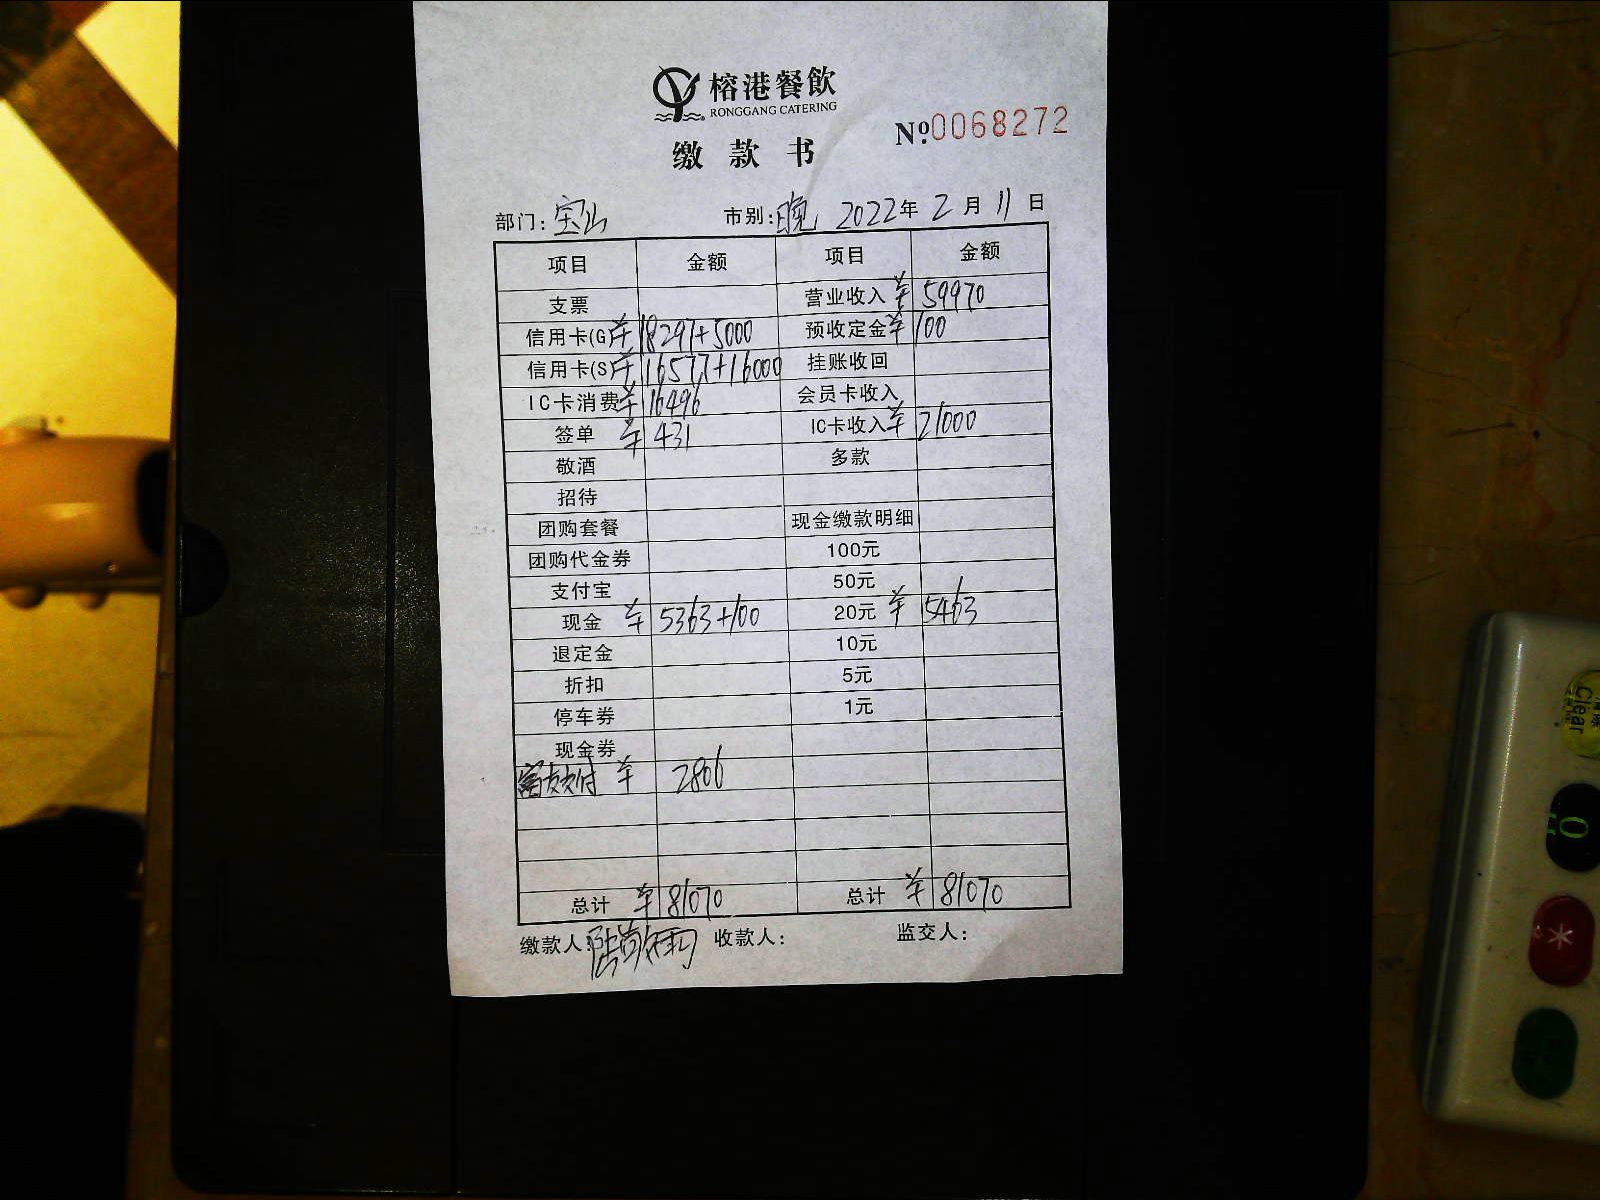 榕港餐飲
RONGGANG CATERING
№.0068272
缴款书
部门: 宝山 市别: 晚 2022年 2月 11日
项目 金额 项目 金额
支票 营业收入 ¥ 59970
信用卡(G) ¥ 18297+5000 预收定金 ¥ 100
信用卡(S) ¥ 16577+16000 挂账收回
IC卡消费 ¥ 16496 会员卡收入
签单 ¥ 431 IC卡收入 ¥ 21000
敬酒 多款
招待
团购套餐 现金缴款明细
团购代金券 100元
支付宝 50元
现金 ¥ 5363+100 20元 ¥ 5463
退定金 10元
折扣 5元
停车券 1元
现金券
富友支付 ¥ 2806
总计 ¥ 81070 总计 ¥ 81070
缴款人: 收款人: 监交人:
Clear
0
*